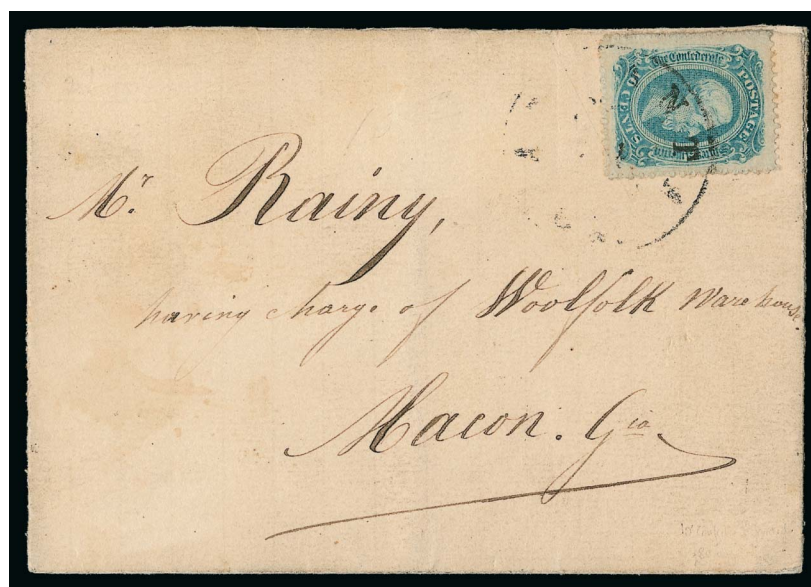 The Confederate
POSTAGE
CENTS
Mr. Rainy,
having charge of Woolfolk Warehouse.
Macon. Gia.